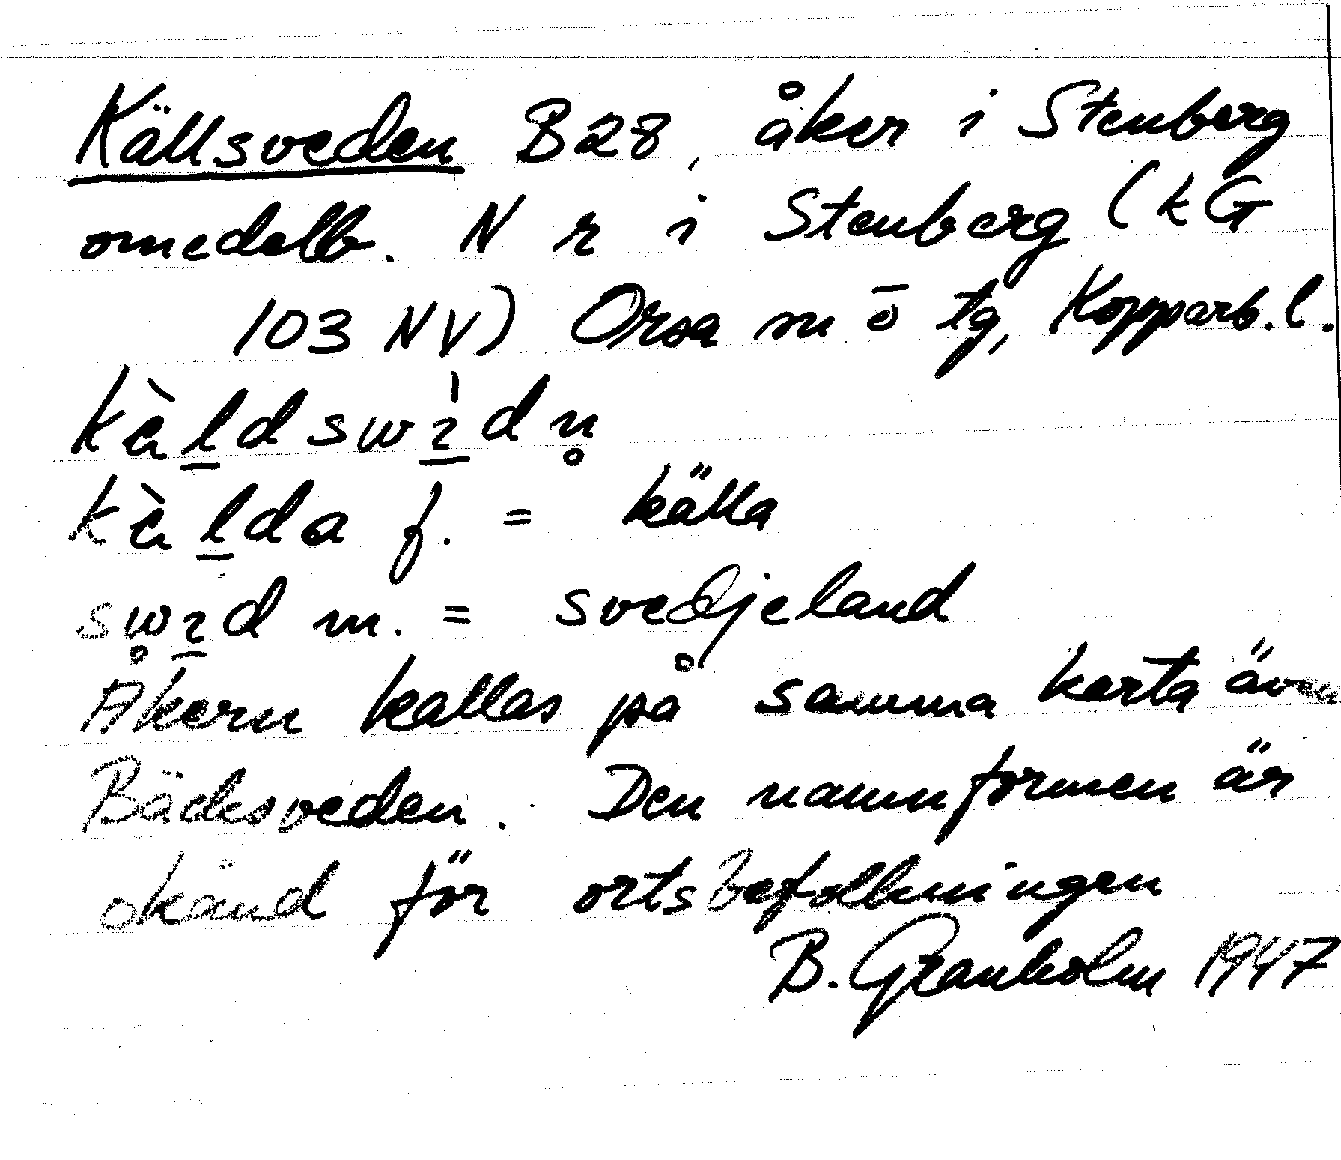 Källsveden B28, åker i Stenberg
omedelb. N r i Stenberg (kG
103 NV) Orsa m ō tg, Kopparb.l.
kὲldswɪ̍dn̥
kὲlda f. = källa
swɪd m. = svedjeland
Åkern kallas på samma karta även
Bäcksveden. Den namnformen är
okänd för ortsbefolkningen
B. Granholm 1947